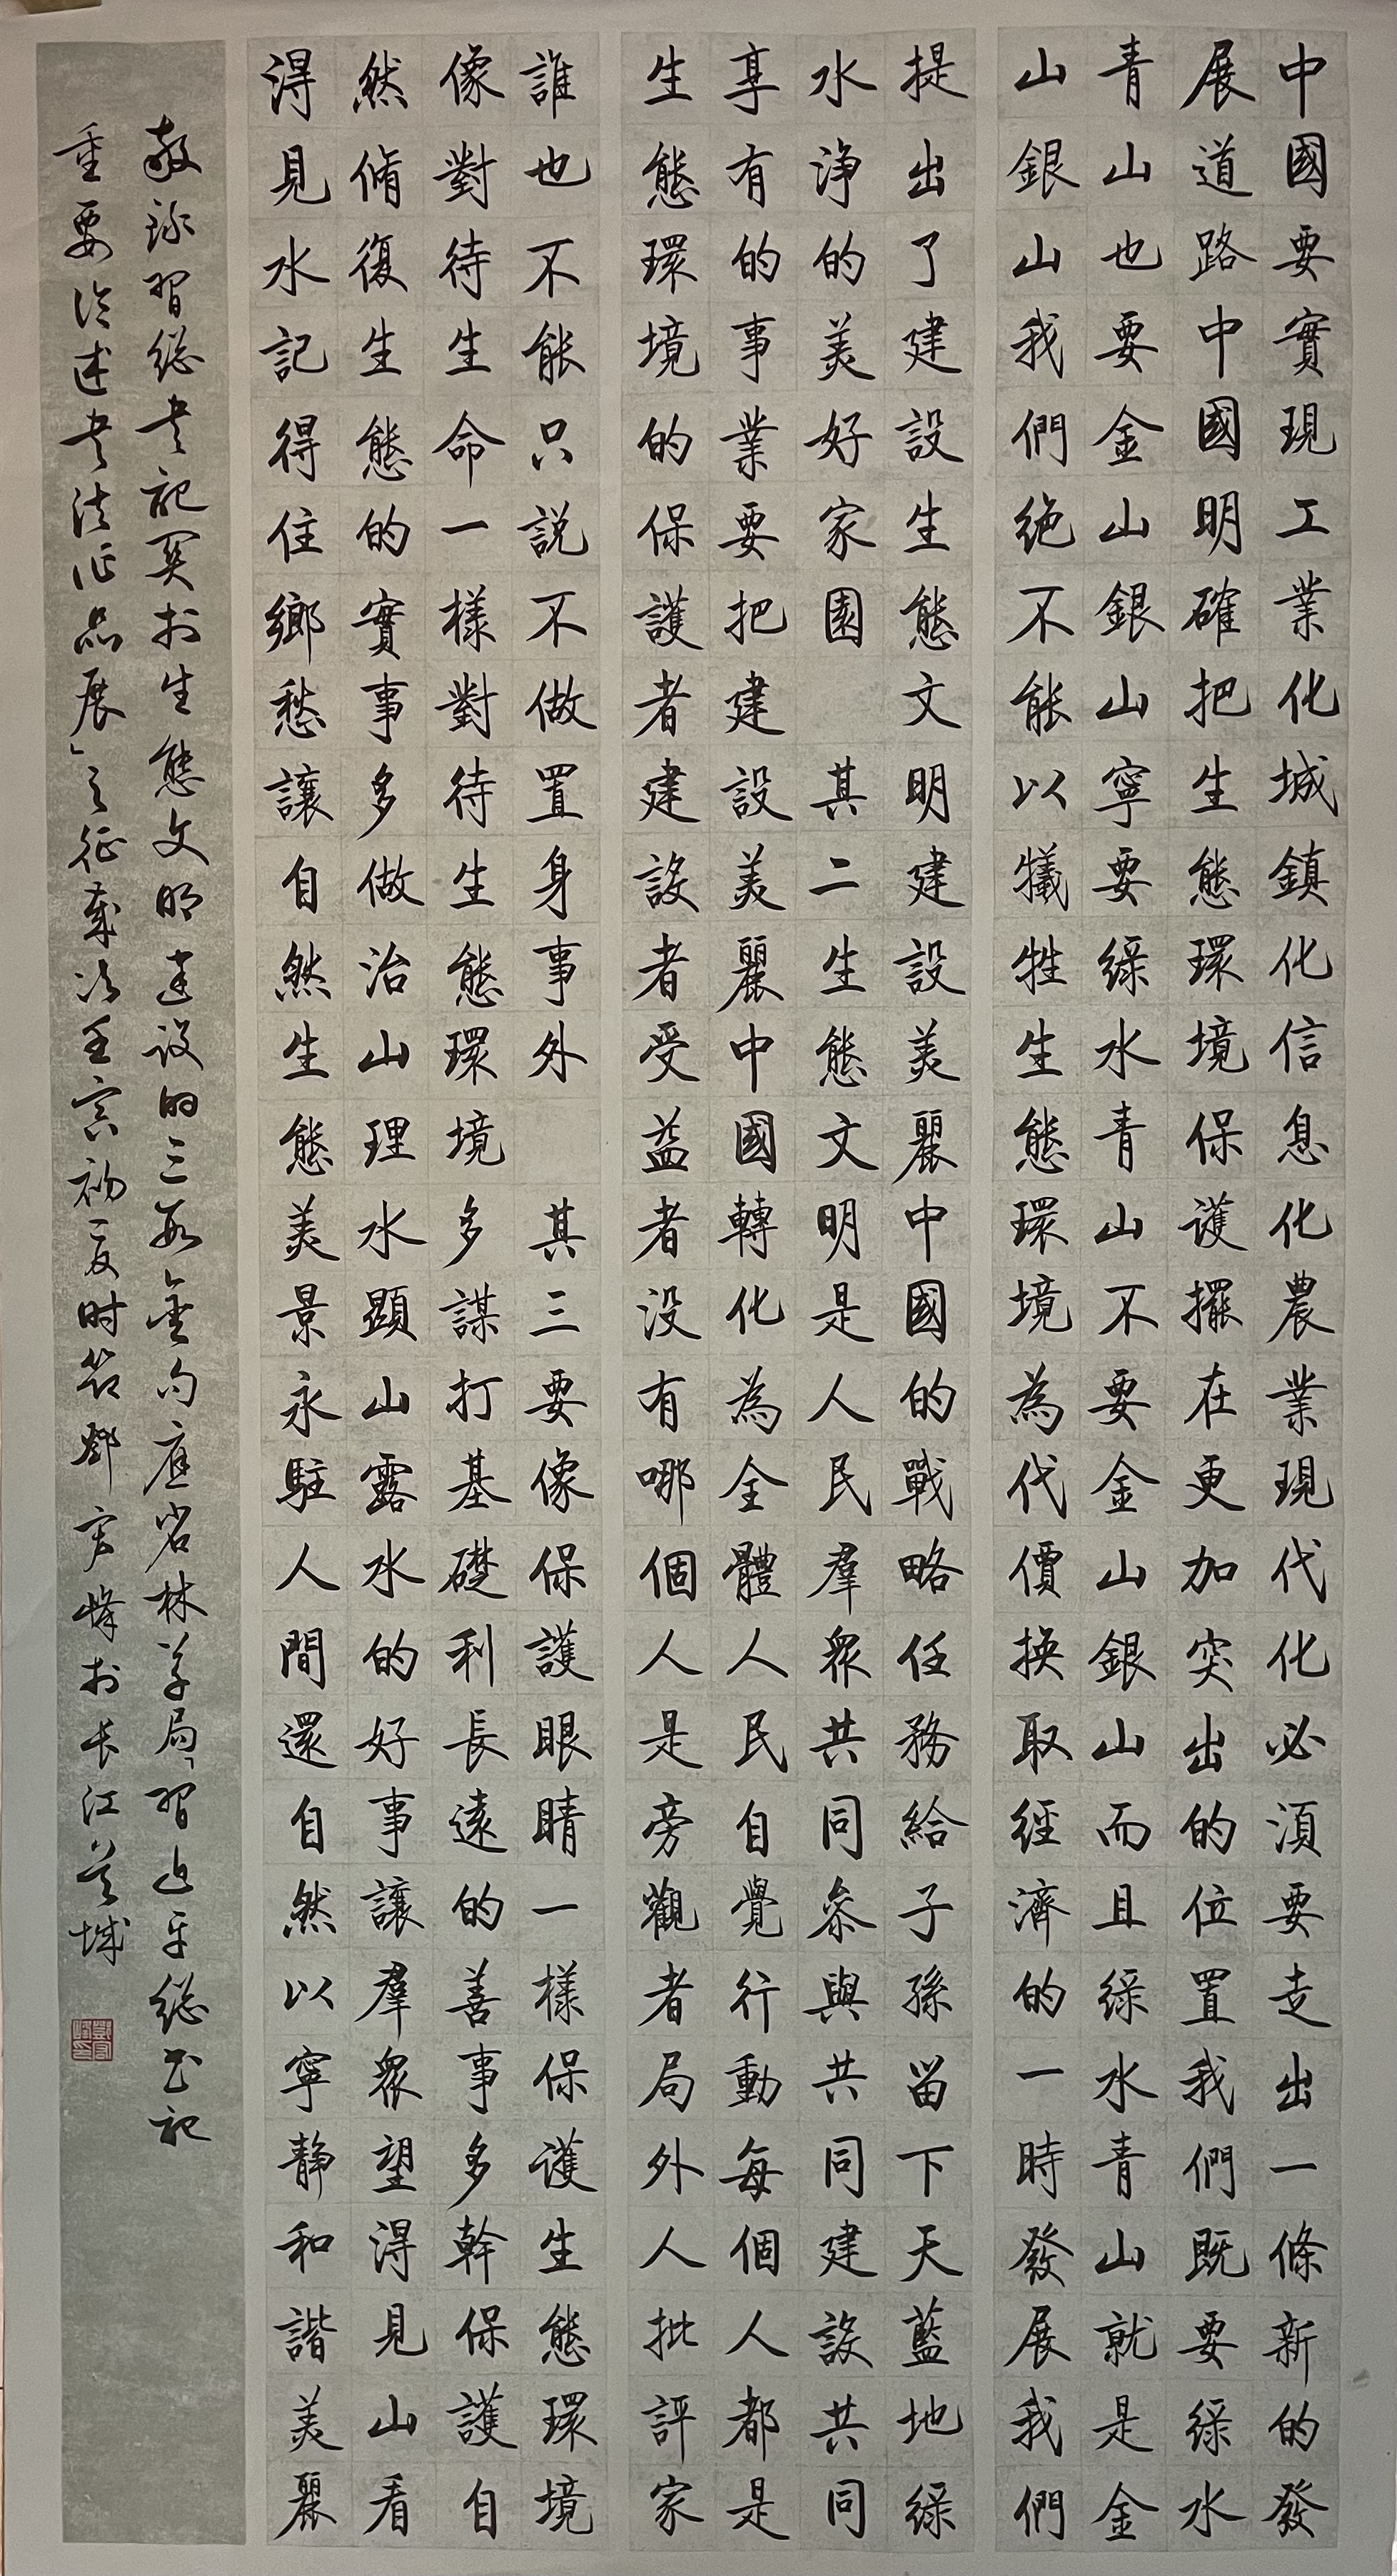 中國要實現工業化城鎮化信息化農業現代化必須要走出一條新的發
展道路中國明確把生態環境保護擺在更加突出的位置我們既要綠水
青山也要金山銀山寧要綠水青山不要金山銀山而且綠水青山就是金
山銀山我們絕不能以犧牲生態環境為代價換取經濟的一時發展我們
提出了建設生態文明建設美麗中國的戰略任務給子孫留下天藍地綠
水净的美好家園 其二生態文明是人民羣衆共同參與共同建設共同
享有的事業要把建設美麗中國轉化為全體人民自覺行動每個人都是
生態環境的保護者建設者受益者没有哪個人是旁觀者局外人批評家
誰也不能只説不做置身事外 其三要像保護眼睛一樣保護生態環境
像對待生命一樣對待生態環境多謀打基礎利長遠的善事多幹保護自
然脩復生態的實事多做治山理水顯山露水的好事讓羣衆望得見山看
得見水記得住鄉愁讓自然生態美景永駐人間還自然以寧静和諧美麗
敬録習總书記关於生態文明建设的三段金句應省林草局「習近平總书記
重要论述书法作品展」之征藁次壬寅初夏时節鄧官峰於长江